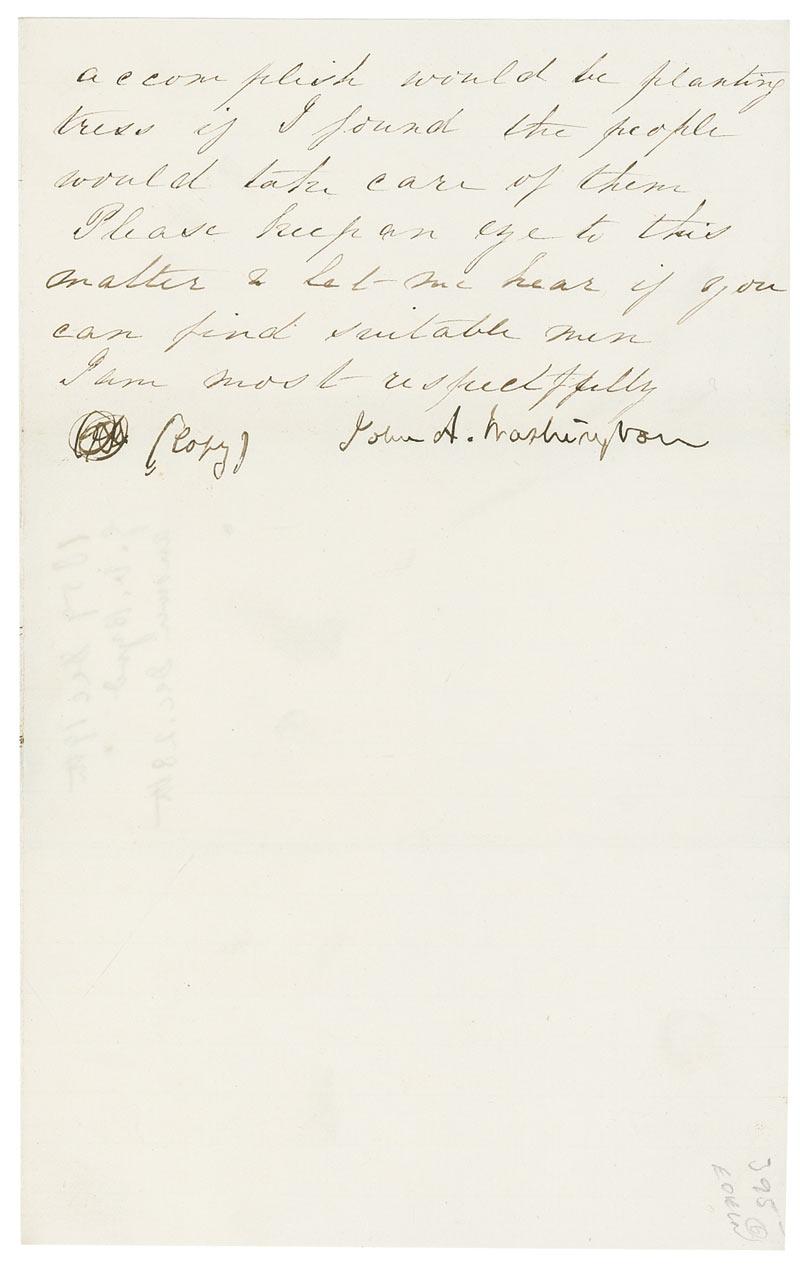 accomplish would be planting
tress if I found the people
would take care of them
Please keep an eye to this
matter & let me hear if you
can find suitable men
I am most respectfully
(Copy) John A. Washington
1857 Dec 19th
answered Dec. 28th
395